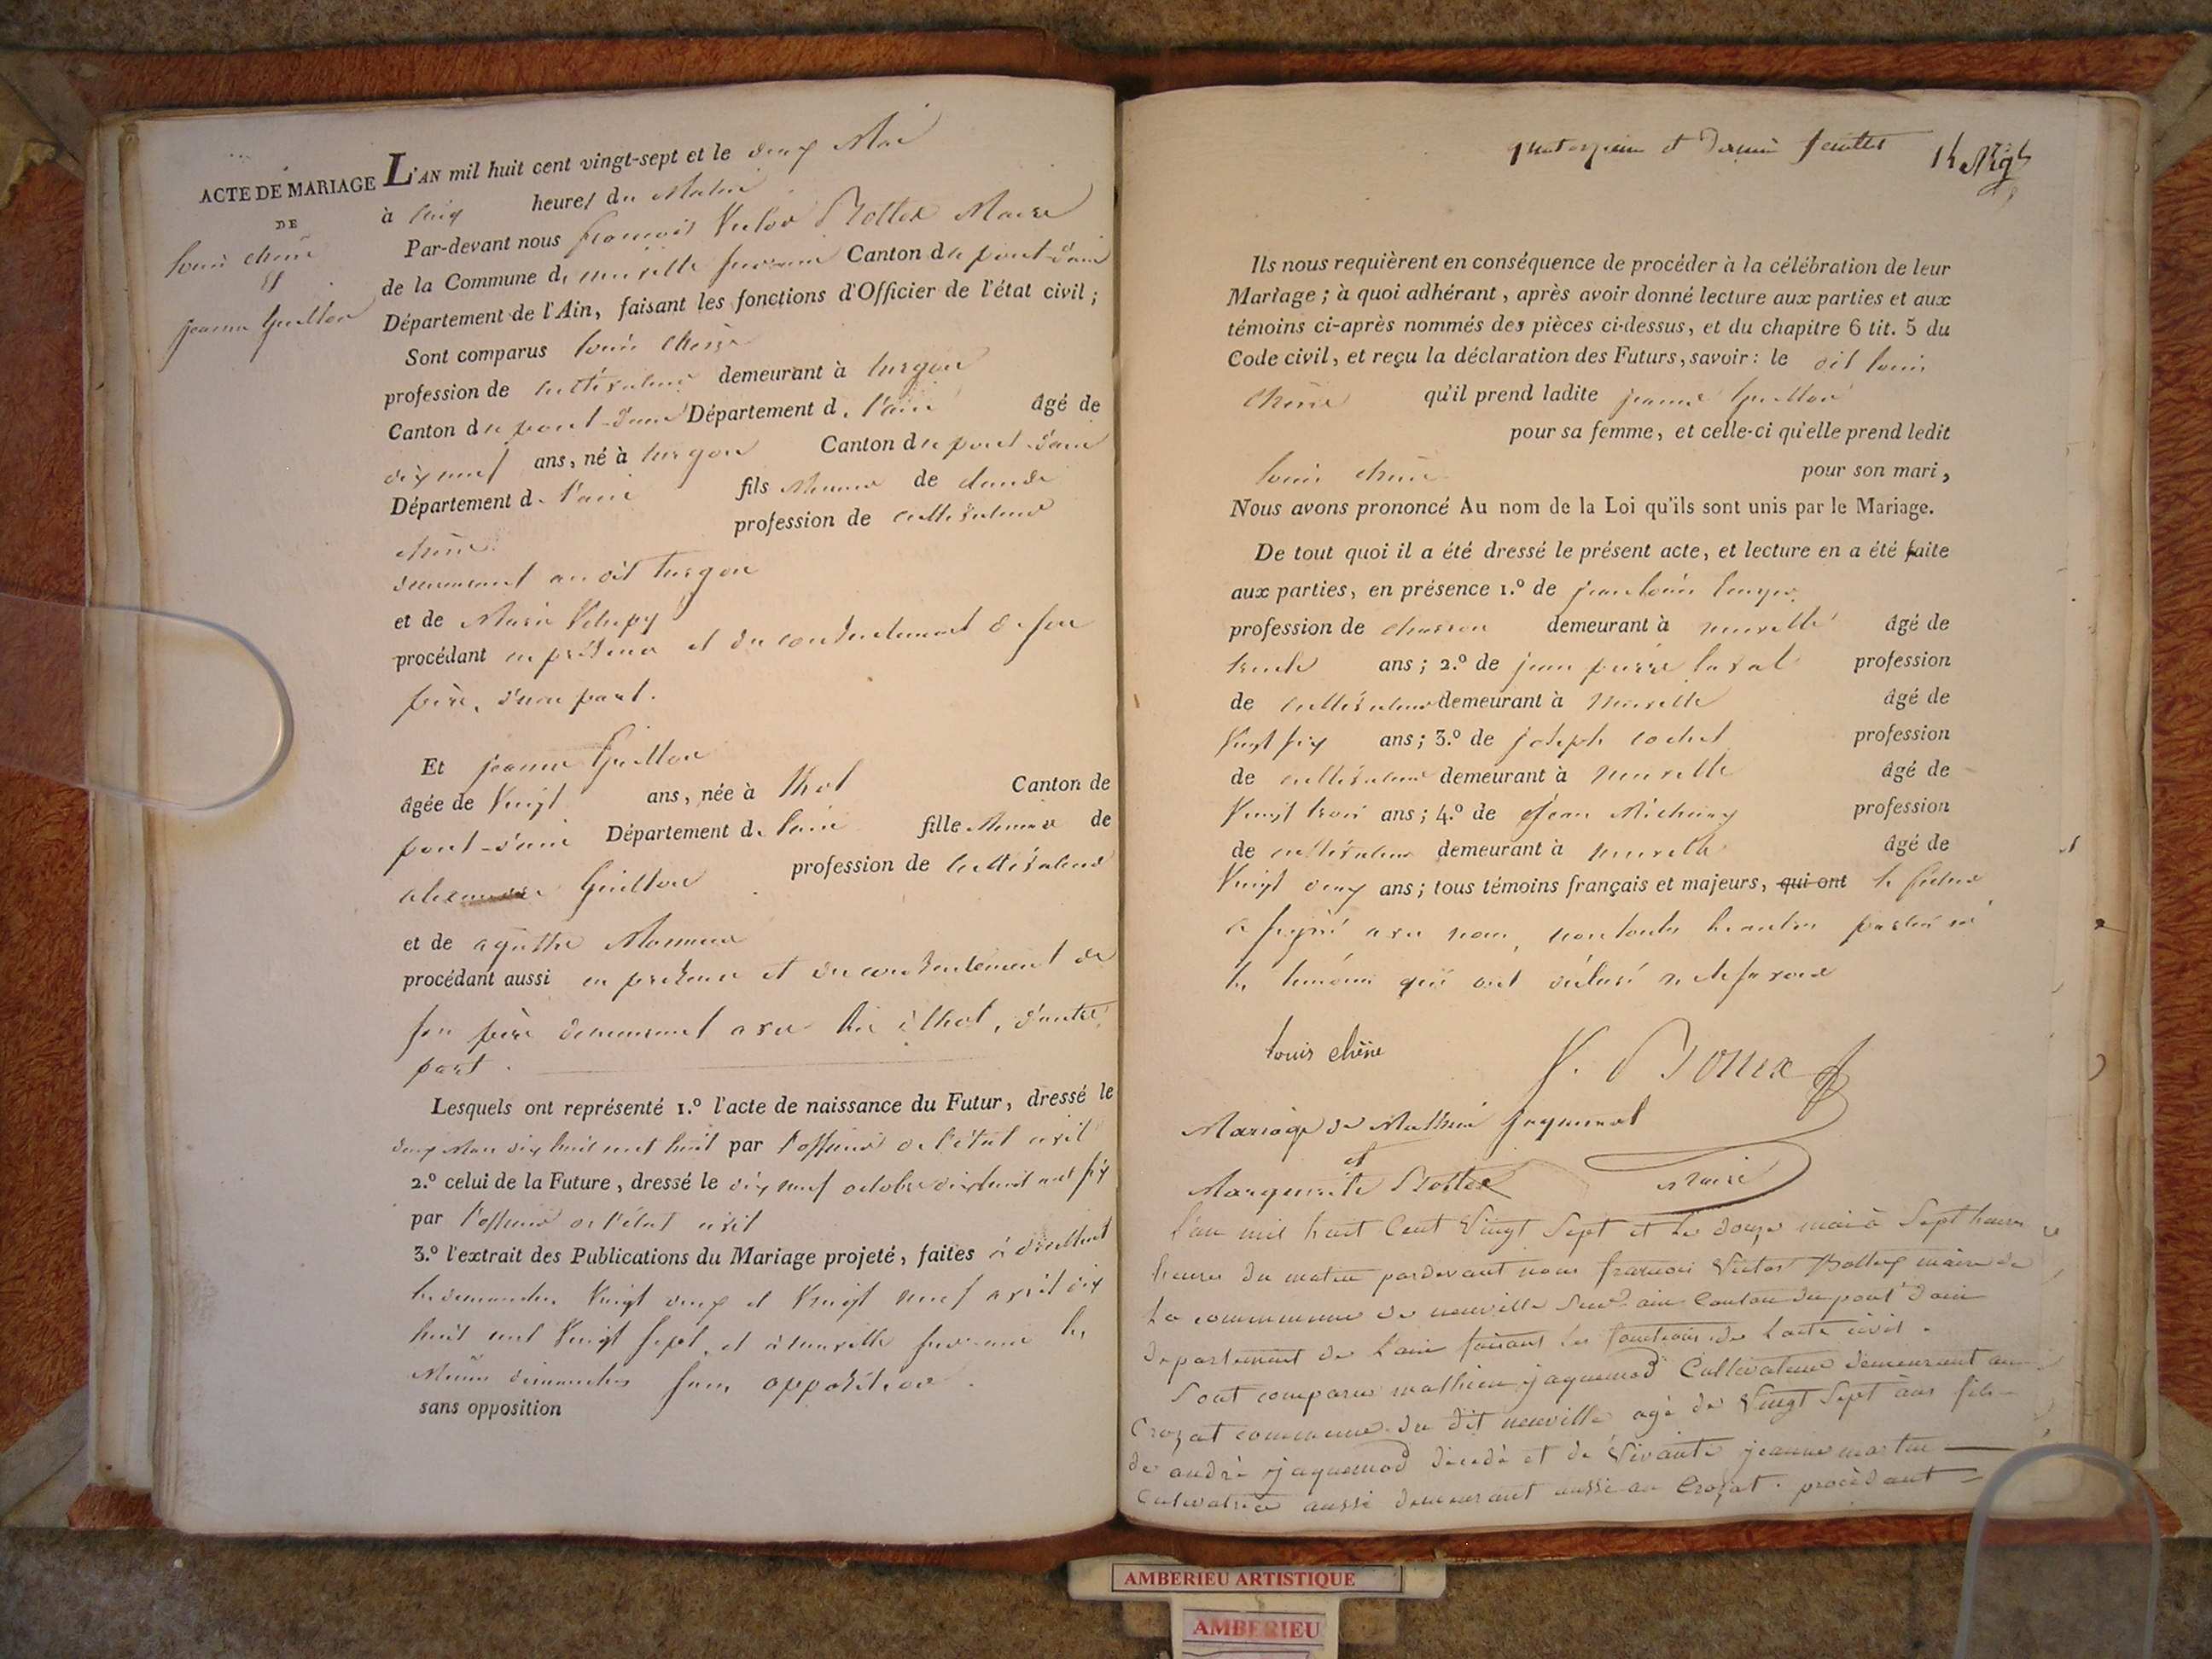 ACTE DE MARIAGE
DE
Louis chêne
et
jeanne Guillon
L'AN mil huit cent vingt-sept et le deux Mai
à six heures du Matin
Par-devant nous françois Victor Bottex Maire
de la Commune de neuville sur ain Canton du pont-d'ain
Département de l'Ain, faisant les fonctions d'Officier de l'état civil ;
Sont comparus Louis chêne
profession de cultivateur demeurant à turgon
Canton du pont-d'ain Département de l'ain âgé de
dix neuf ans, né à turgon Canton du pont-d'ain
Département de l'ain fils mineur de claude
chêne profession de cultivateur
demeurant au dit turgon
et de Marie
procédant en présence et du consentement de son
père, d'une part.
Et jeanne Guillon
âgée de vingt ans, née à thol Canton de
pont-d'ain Département de l'ain fille mineure de
alexandre Guillon profession de cultivateur
et de agathe
procédant aussi en présence et du consentement de
son père demeurant avec lui à thol, d'autre
part.
Lesquels ont représenté 1.º l'acte de naissance du Futur, dressé le
deux Mars dix huit cent huit par l'officier de l'état civil
2.º celui de la Future, dressé le dix neuf octobre dix huit cent six
par l'officier de l'état civil
3.º l'extrait des Publications du Mariage projeté, faites à druillat
les dimanches vingt deux et vingt neuf avril dix
huit cent vingt sept, et à neuville sur ain les
mêmes dimanches sans opposition.
sans opposition
quatorzième et dernier feuillet 14
Ils nous requièrent en conséquence de procéder à la célébration de leur
Mariage ; à quoi adhérant, après avoir donné lecture aux parties et aux
témoins ci-après nommés des pièces ci-dessus, et du chapitre 6 tit. 5 du
Code civil, et reçu la déclaration des Futurs, savoir : le dit Louis
chêne qu'il prend ladite jeanne Guillon
pour sa femme, et celle-ci qu'elle prend ledit
Louis chêne pour son mari,
Nous avons prononcé Au nom de la Loi qu'ils sont unis par le Mariage.
De tout quoi il a été dressé le présent acte, et lecture en a été faite
aux parties, en présence 1.º de jean Louis
profession de charron demeurant à neuville âgé de
trente ans ; 2.º de jean pierre laval profession
de cultivateur demeurant à neuville âgé de
vingt six ans ; 3.º de joseph cochet profession
de cultivateur demeurant à neuville âgé de
vingt trois ans ; 4.º de jean profession
de cultivateur demeurant à neuville âgé de
vingt deux ans ; tous témoins français et majeurs, qui ont le futur
a signé avec nous, non toutes les autres parties ni
les témoins qui ont déclaré ne le savoir
Louis chêne
V. Bottex
Mariage de Mathieu jaquemod
et
Marguerite Bottex
Maire
L'an mil huit Cent Vingt Sept et le douze mai à Sept heures
heures du matin pardevant nous françois Victor Bottex maire de
La commune de neuville sur ain Canton du pont d'ain
departement de L'ain faisant les fonctions de L'acte civil.
Sont comparu mathieu jaquemod Cultivateur demeurant au
Crozat commune du dit neuville agé de Vingt Sept ans fils
de andré jaquemod decedé et de Vivante jeanne martin
Cultivatrice aussi demeurant aussi au Crozat. procèdant
AMBERIEU ARTISTIQUE
AMBERIEU